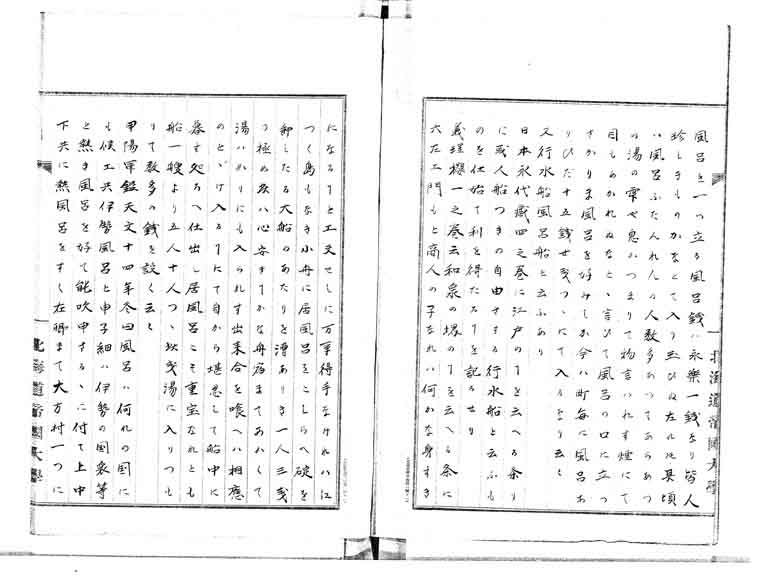 風呂を一つ立る風呂銭ハ永樂一銭なり皆人
珍しきものかなとて入り玉ひぬ左れ共其頃
ハ風呂ふたんれんの人数多あつてあらあつ
の湯の雫や息かつまりて物言ハれす煙にて
目もあかれぬなと、言ひて風呂の口に立つ
さかりま風呂を好みしか今ハ町每に風呂あ
りひた十五銭廿戔つゝにて入るなり云〻
又行水船風呂船と云ふあり
日本永代蔵四之巻に江戸のヿを云へる条り
に或人船つきの自由さする行水船と云ふも
のを仕始て利を得たるヿを記るせり
義理櫻一之巻云和泉の堺のヿを云へる条に
六左エ門もと商人の子なれハ何かな身すき
になるヿと工夫せしに万事得手なけれハ江
つく島もなき小舟に居風呂をこしらへ碇を
卸したる大船のあたりを漕ありき一人三戔
つ極め夜ハ心安すかな舟宿まてあかくて
湯ハかりにも入られす出来合を喰へハ相應
のとゝけ入るヿにて自から堪忍して船中に
暮す処ろへ仕出し居風呂こそ重宝なれとも
船一艘より五人十人つゝ 三戔湯に入りつも
りて数多の銭を設く云〻
甲陽軍鑑天文十四年条曰風呂ハ何れの国に
も候工共伊勢風呂と申子細ハ伊勢の国衆等
と熱き風呂を好て能吹申すゝに付て上中
下共に熱風呂をすく在郷まて大方村一つに
北海道帝國大學
北海道帝國大學